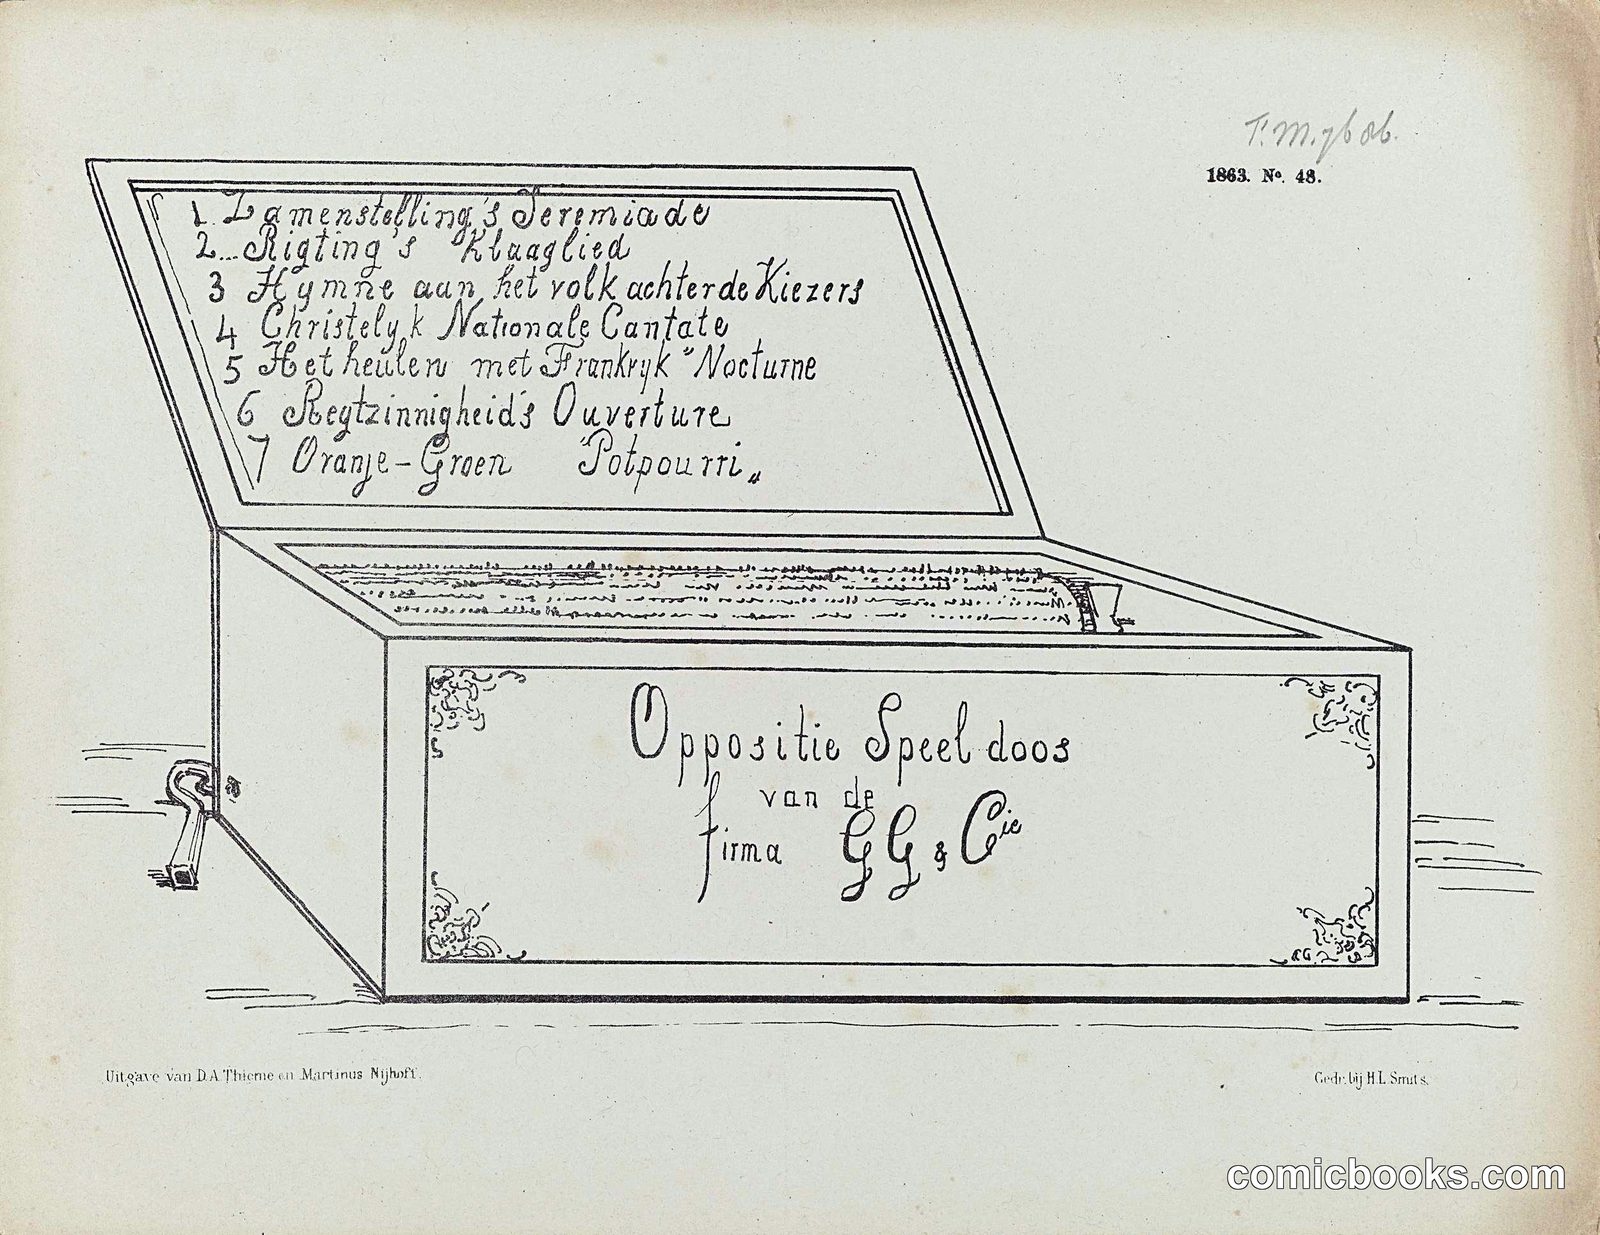 T. M. 7686.
1863. No. 48.
1 Zamenstelling's Jeremiade
2... Rigting's Klaaglied
3 Hymne aan het volk achter de Kiezers
4 Christelyk Nationale Cantate
5 Het heulen met Frankryk "Nocturne
6 Regtzinnigheid's Ouverture
7 Oranje-Groen "Potpourri"
Oppositie Speeldoos
van de
firma GG & Cie
Uitgave van D.A. Thieme en Martinus Nijhoff.
Gedr. bij H.L. Smits.
comicbooks.com